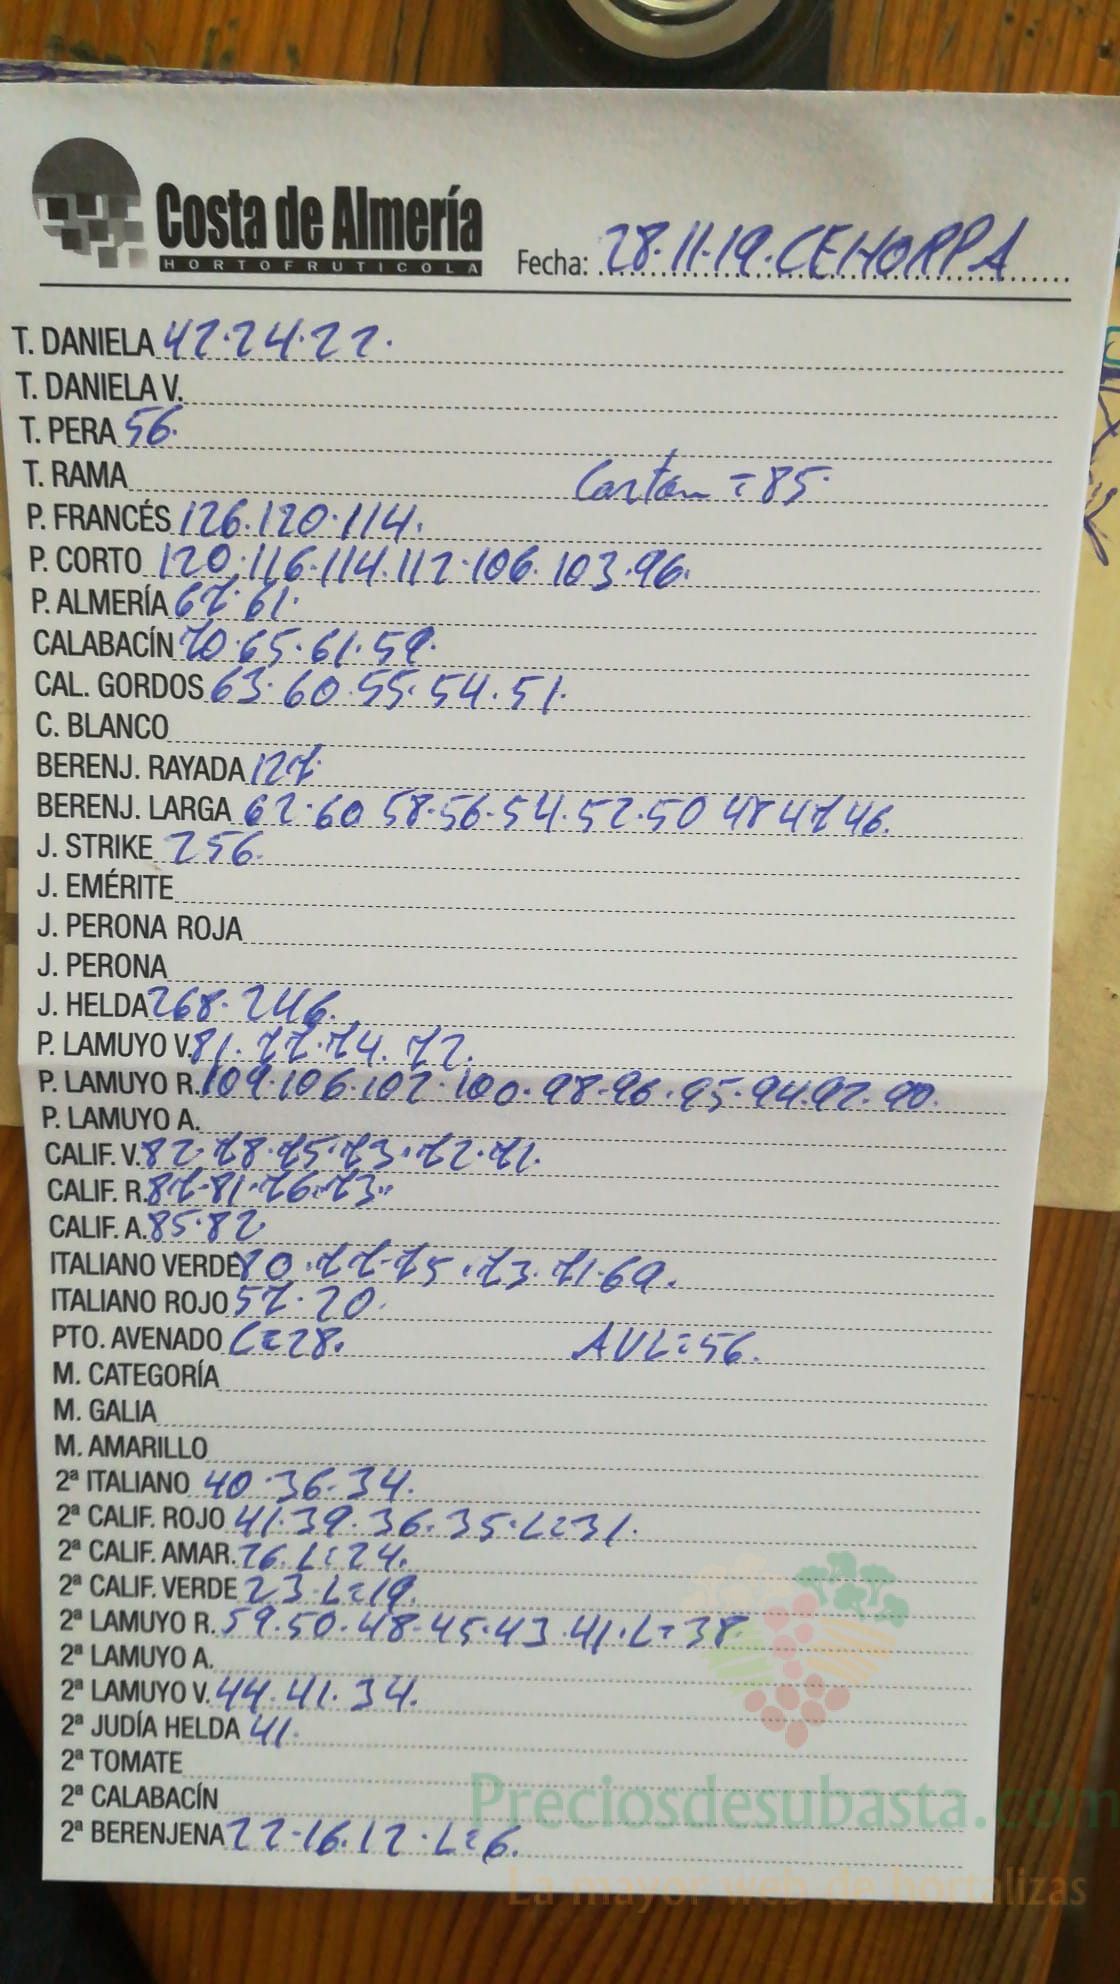 Costa de Almería
HORTOFRUTICOLA
Fecha: 28.11.19.CEHORPA
T. DANIELA 42.24.22.
T. DANIELA V.
T. PERA 56.
T. RAMA Carton = 85.
P. FRANCÉS 126.120.114.
P. CORTO 120.116.114.112.106.103.96.
P. ALMERÍA 67.61.
CALABACÍN 70.65.61.59.
CAL. GORDOS 63.60.55.54.51.
C. BLANCO
BERENJ. RAYADA 127.
BERENJ. LARGA 62.60 58.56.54.52.50 48 47 46.
J. STRIKE 256.
J. EMÉRITE
J. PERONA ROJA
J. PERONA
J. HELDA 268.246.
P. LAMUYO V. 81.77.74.72.
P. LAMUYO R. 109.106.102.100.98.96.95.94.92.90.
P. LAMUYO A.
CALIF. V. 82.78.75.73.72.71.
CALIF. R. 87.81.76.73.
CALIF. A. 85.82
ITALIANO VERDE 80.77.75.73.71.69.
ITALIANO ROJO 57.20.
PTO. AVENADO L=28. AVL=56.
M. CATEGORÍA
M. GALIA
M. AMARILLO
2ª ITALIANO 40.36.34.
2ª CALIF. ROJO 41.39.36.35.L=31.
2ª CALIF. AMAR. 26.L=24.
2ª CALIF. VERDE 23.L=19.
2ª LAMUYO R. 59.50.48.45.43.41.L=38
2ª LAMUYO A.
2ª LAMUYO V. 44.41.34.
2ª JUDÍA HELDA 41.
2ª TOMATE
2ª CALABACÍN
2ª BERENJENA 22.16.12.L=6.
Preciosdesubasta.com
La mayor web de hortalizas